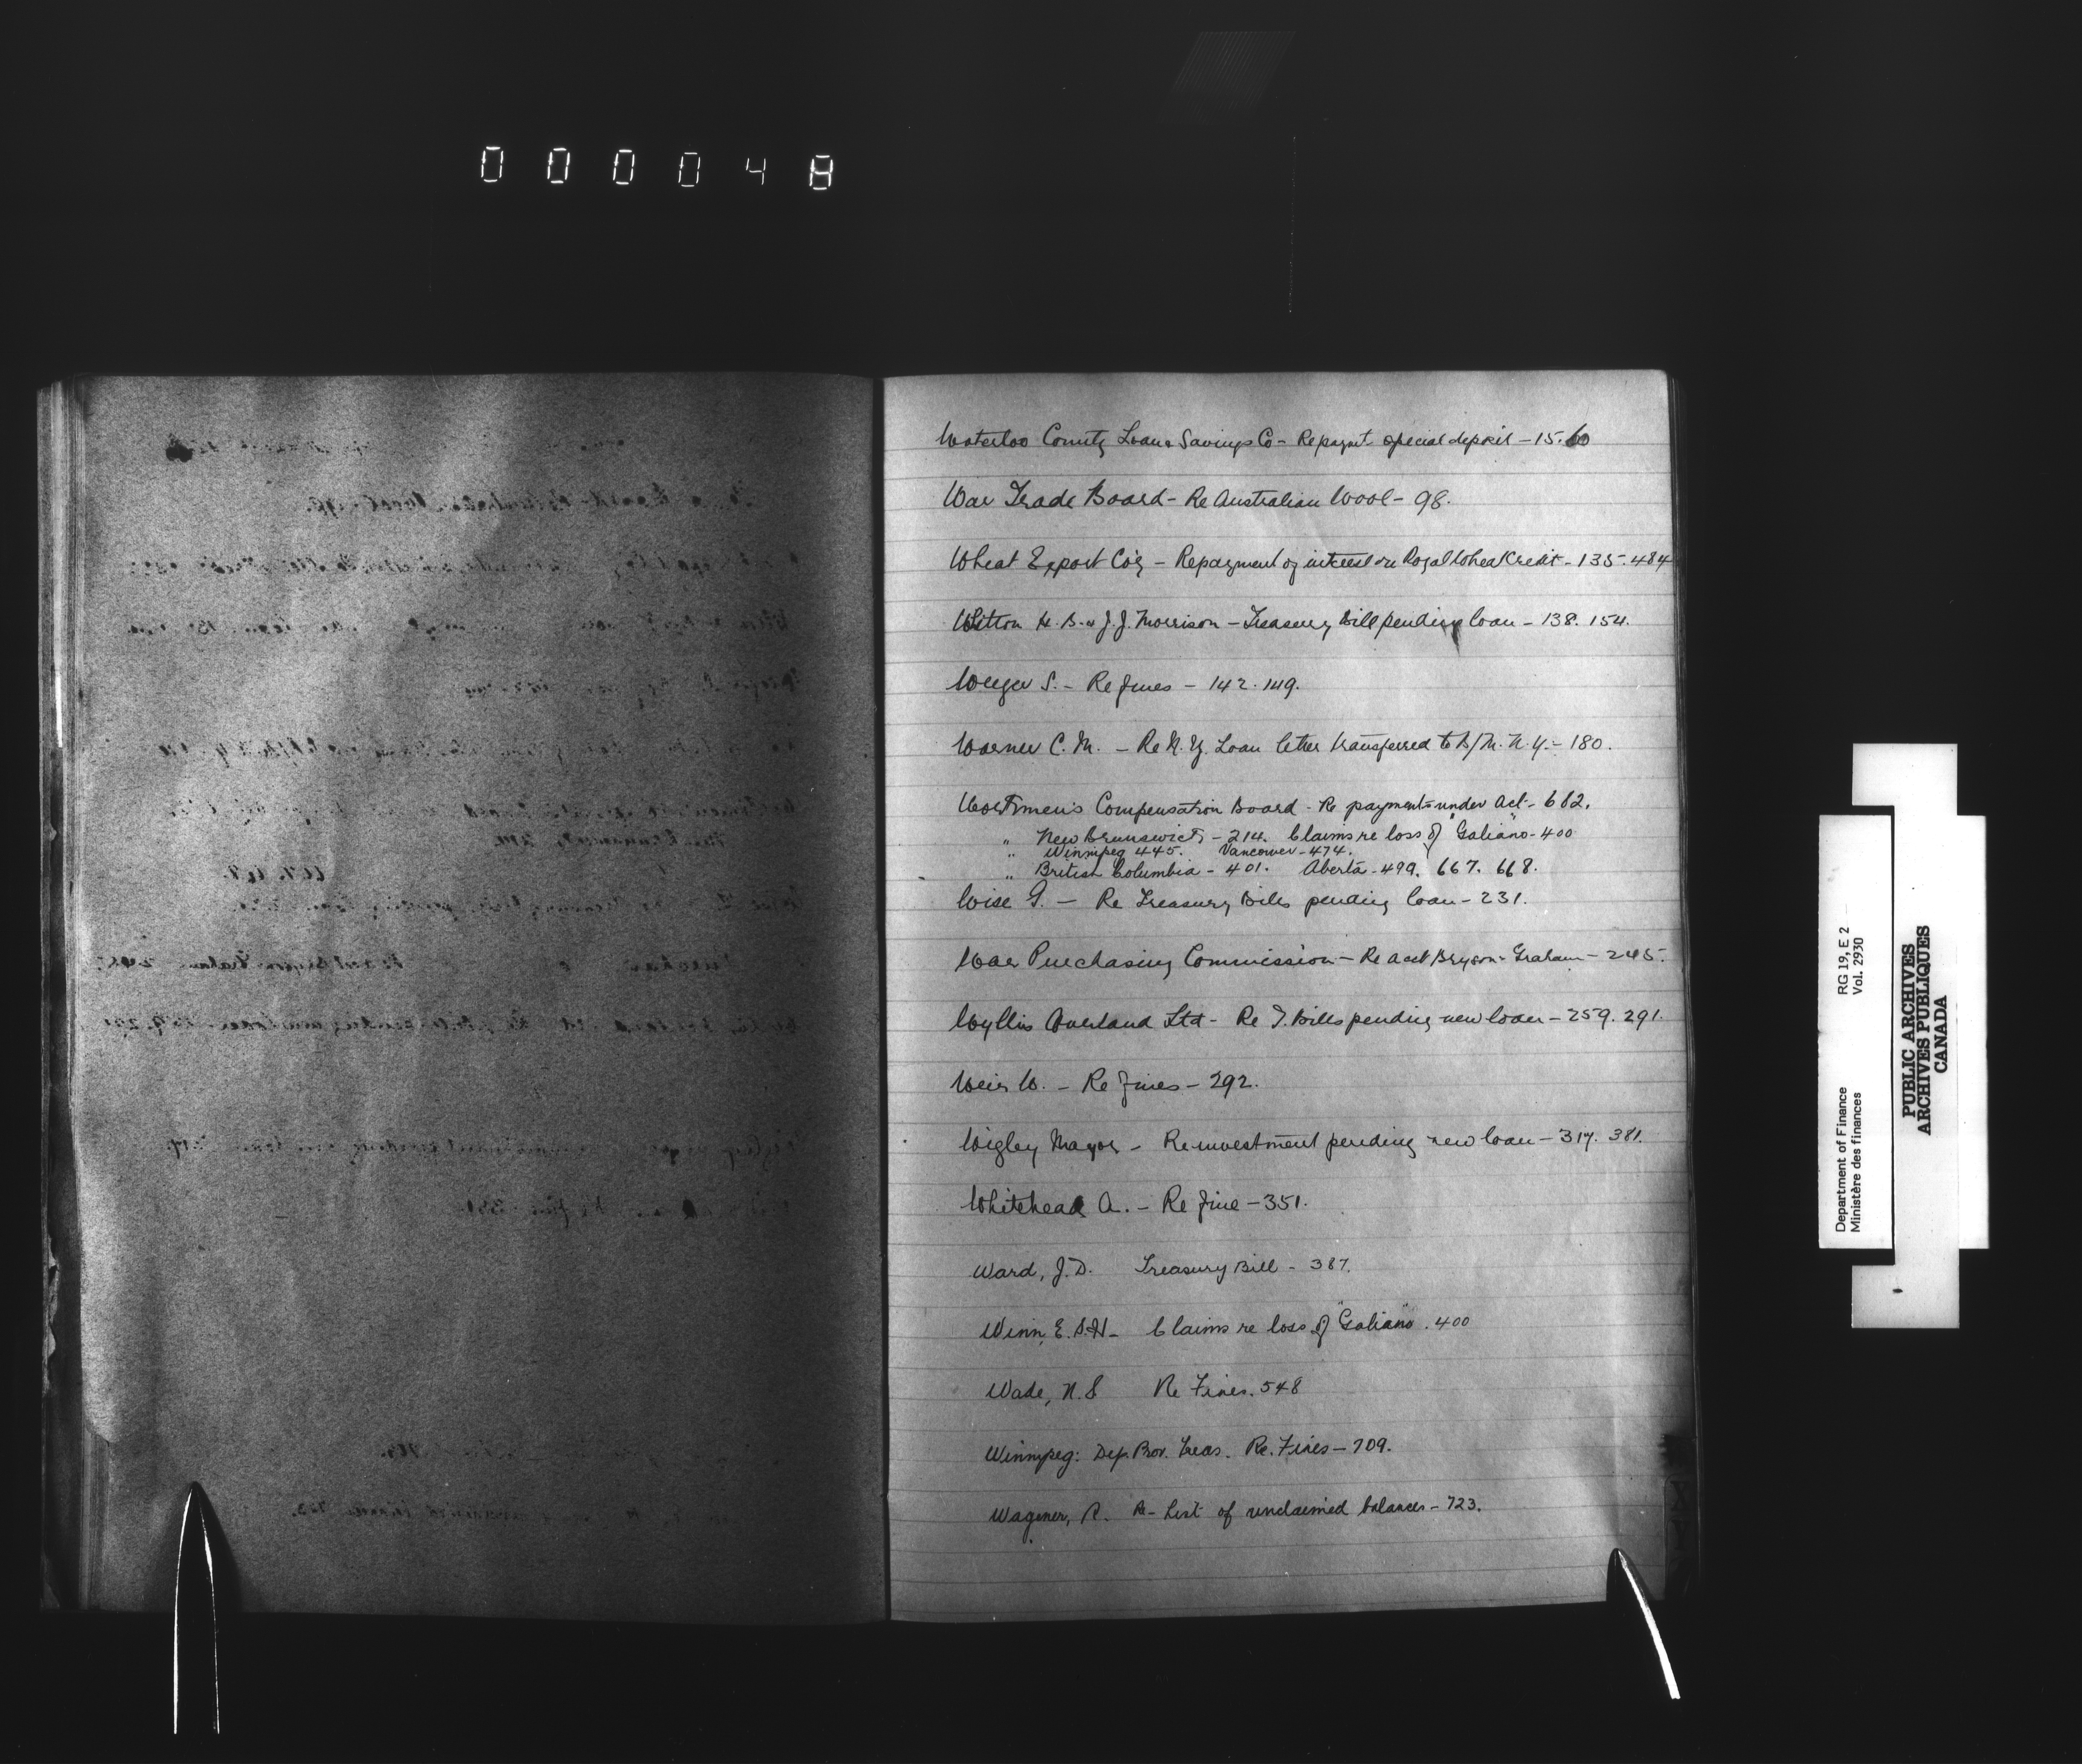 000048
Waterloo County Loan & Savings Co - Repaymt special deposit - 15. 60
War Trade Board - Re Australian Wool - 98.
Wheat Export Co'y - Repayment of interest on Royal Wheat Credit - 135. 484
Witton H. B. & J. J. Morrison - Treasury Bill pending loan - 138. 154.
S. - Re fines - 142. 149.
Warner C. M. - Re N. Y. Loan letter transferred to B/M. N. Y. - 180.
Workmen's Compensation Board - Re payments under Act - 682.
" New Brunswick - 214. Claims re loss of "Galiano" - 400
" Winnipeg 445. Vancouver - 474.
" British Columbia - 401. Aberta - 499. 667. 668.
Wise G. - Re Treasury Bills pending loan - 231.
War Purchasing Commission - Re acct Bryson - Graham - 245.
Wyllis Overland Ltd - Re T. Bills pending new loan - 259. 291.
Weir W. - Re fines - 292.
Wigley Mayor - Re investment pending new loan - 317. 381.
Whitehead A. - Re fine - 351.
Ward, J. D. Treasury Bill - 387.
Winn, E. S. H. - Claims re loss of "Galiano" . 400
Wade, N. S Re Fines. 548
Winnipeg: Dep. Prov. Treas. Re. Fines - 709.
Wagener, R. Re - List of unclaimed balances - 723.
Department of Finance RG 19, E 2
Ministère des finances Vol. 2930
PUBLIC ARCHIVES
ARCHIVES PUBLIQUES
CANADA